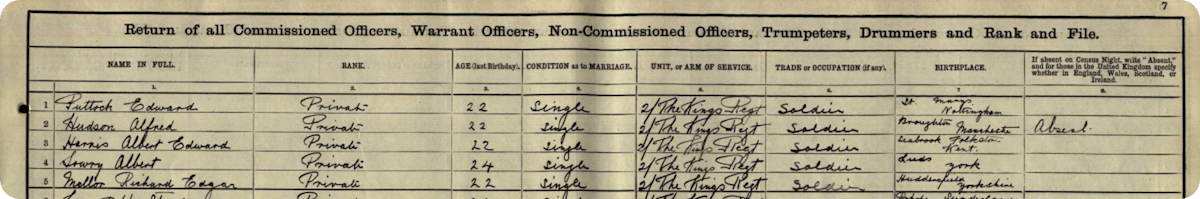 7
Return of all Commissioned Officers, Warrant Officers, Non-Commissioned Officers, Trumpeters, Drummers and Rank and File.
NAME IN FULL. RANK. AGE (last Birthday). CONDITION as to MARRIAGE. UNIT, or ARM OF SERVICE. TRADE or OCCUPATION (if any). BIRTHPLACE. If absent on Census Night, write "Absent," and for those in the United Kingdom specify whether in England, Wales, Scotland, or Ireland.
1. 2. 3. 4. 5. 6. 7. 8.
1 Puttock Edward Private 22 Single 2/The Kings Regt Soldier St. Marys Nottingham
2 Hudson Alfred Private 22 Single 2/The Kings Regt Soldier Broughton Manchester Absent.
3 Harris Albert Edward Private 22 Single 2/The Kings Regt Soldier Seabrook Folkstone Kent.
4 Lowry Albert Private 24 Single 2/The Kings Regt Soldier Leeds York
5 Mellor Richard Edgar Private 22 Single 2/The Kings Regt Soldier Huddersfield Yorkshire